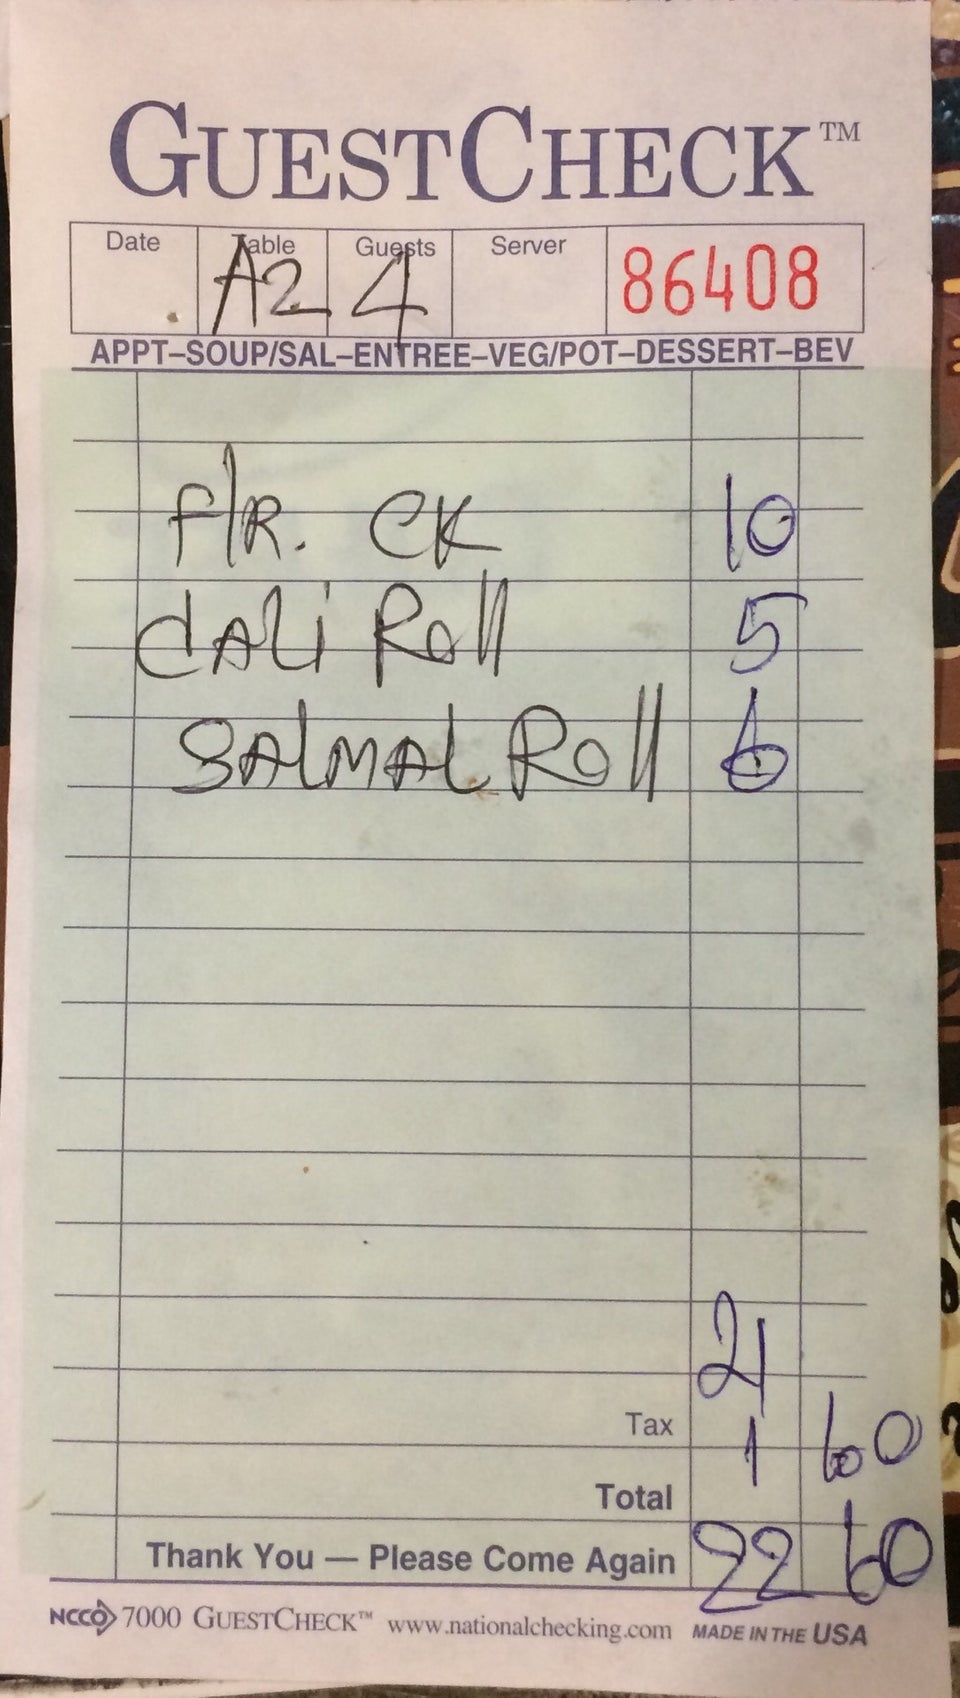 GUESTCHECK™
Date Table Guests Server
A2 4 86408
APPT–SOUP/SAL–ENTREE–VEG/POT–DESSERT–BEV
F/R. CK 10
CALi Roll 5
SALMAL Roll 6
21
Tax 1 60
Total
Thank You — Please Come Again 22 60
NCCO 7000 GUESTCHECK™ www.nationalchecking.com MADE IN THE USA